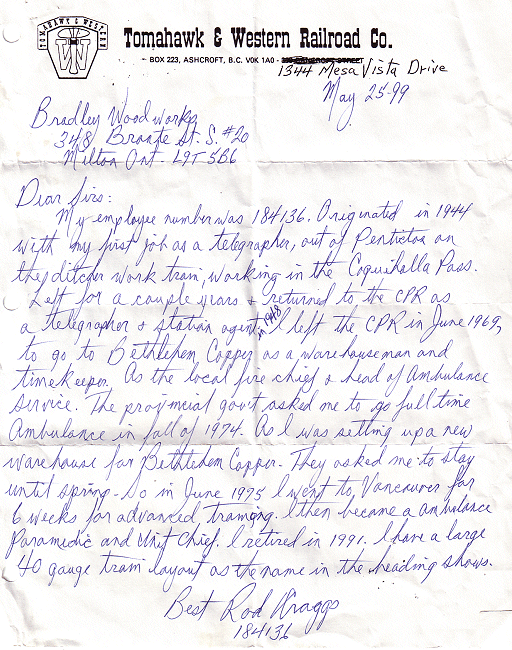 TOMAHAWK & WESTERN
TW
Tomahawk & Western Railroad Co.
BOX 223, ASHCROFT, B.C. V0K 1A0 -
1344 Mesa Vista Drive
May 25-99
Bradley Woodworks
348 Bronte St. S. #20
Milton Ont. L9T 5B6
Dear Sirs:
My employee number was 184136. Originated in 1944
with my first job as a telegrapher, out of Penticton on
the ditcher work train, working in the Coquihalla Pass.
Left for a couple years + returned to the CPR as
a telegrapher + station agent in 1948 I left the CPR in June 1969,
to go to Bethlehem Copper as a warehouseman and
timekeeper. As the local fire chief + head of Ambulance
Service. The provincial gov't asked me to go full time
Ambulance in fall of 1974. As I was setting up a new
warehouse for Bethlehem Copper. They asked me to stay
until spring - So in June 1975 I went to Vancouver for
6 weeks for advanced training. I then became a ambulance
Paramedic and Unit Chief. I retired in 1991. I have a large
40 gauge train layout as the name in the heading shows.
Best Rod Kraggs
184136